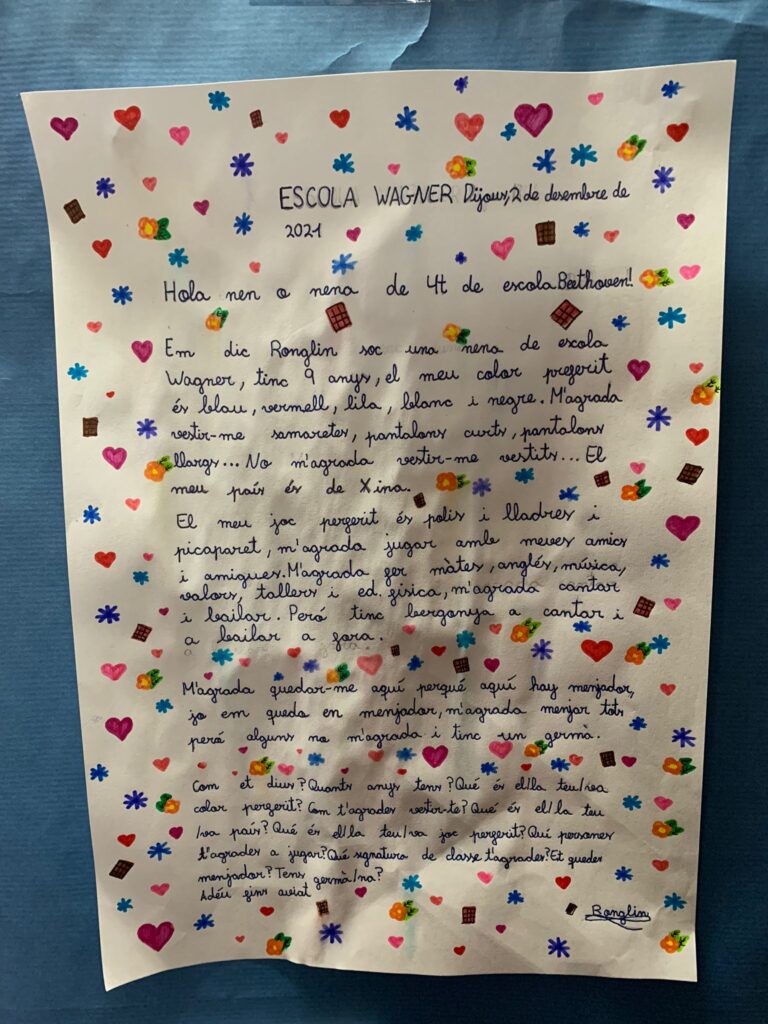 ESCOLA WAGNER Dijous, 2 de desembre de
2021
Hola nen o nena de 4t de escola Beethoven!
Em dic Ronglin soc una nena de escola
Wagner, tinc 9 anys, el meu color pregerit
és blau, vermell, lila, blanc i negre. M'agrada
vestir-me samaretes, pantalons curts, pantalons
llargs... No m'agrada vestir-me vestits... El
meu país és de Xina.
El meu joc pergerit és polis i lladres i
picaparet, m'agrada jugar amb meves amics
i amigues. M'agrada fer màtes, anglés, música,
valors, tallers i ed. física, m'agrada cantar
i bailar. Peró tinc bergonya a cantar i
a bailar a fora.
M'agrada quedar-me aquí perqué aquí hay menjador,
jo em quedo en menjador, m'agrada menjar tots
peró alguns no m'agrada i tinc un germà.
Com et dius? Quants anys tens? Qué és el/la teu/va
color pergerit? Com t'agrades vestir-te? Qué és el/la teu
/va país? Qué és el/la teu/va joc pergerit? Qui persones
t'agrades a jugar? Qué signatura de classe t'agrades? Et quedes
menjador? Tens germà/na?
Adéu fins aviat
Ronglin